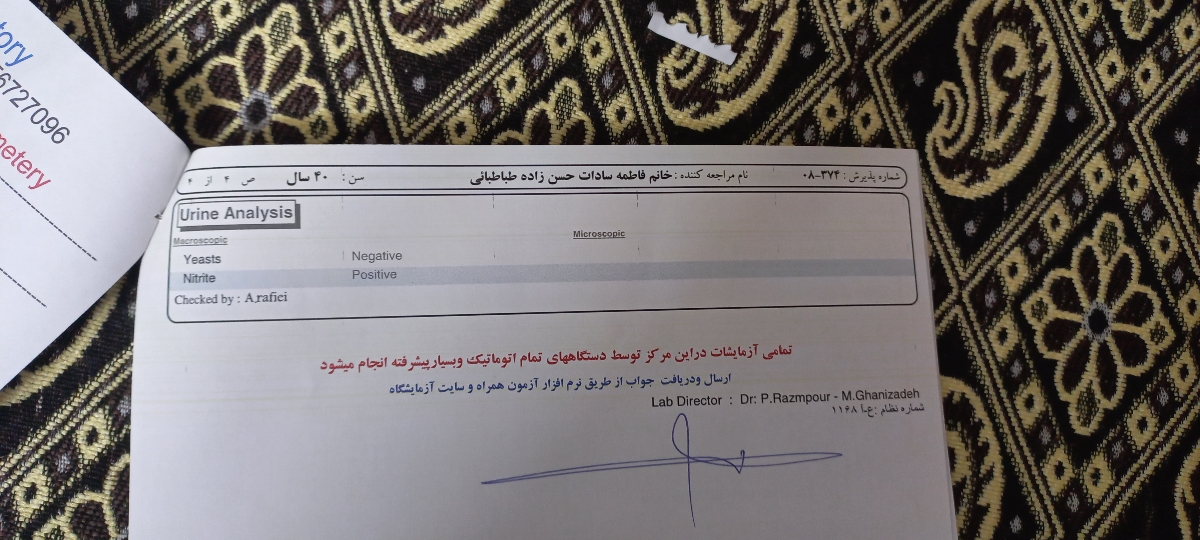 tory
6727096
metery
شماره پذیرش : ۳۷۴-۰۸ نام مراجعه کننده : خانم فاطمه سادات حسن زاده طباطبائی سن : ۴۰ سال ص ۴ از ۴
Urine Analysis
Macroscopic Microscopic
Yeasts Negative
Nitrite Positive
Checked by : A.rafiei
تمامی آزمایشات دراین مرکز توسط دستگاههای تمام اتوماتیک وبسیارپیشرفته انجام میشود
ارسال ودریافت جواب از طریق نرم افزار آزمون همراه و سایت آزمایشگاه
Lab Director : Dr: P.Razmpour - M.Ghanizadeh
شماره نظام : ع-آ ۱۱۶۸